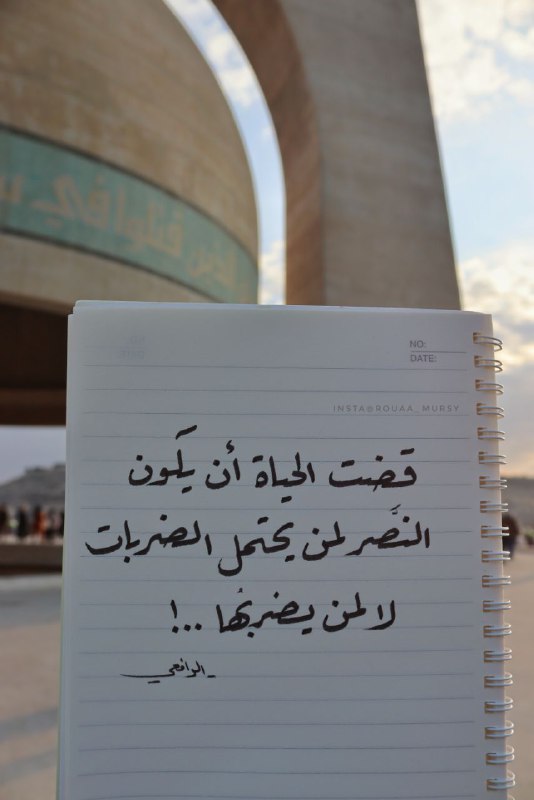 الذين قتلوا في
NO:
DATE:
INSTA@ROUAA_MURSY
قضت الحياة أن يكون
النَّصر لمن يحتمل الضربات
لا لمن يضربُها ..!
- الرافعي